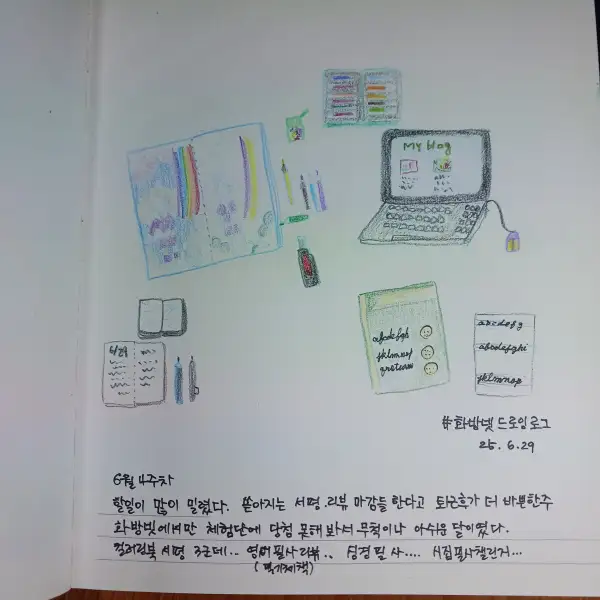 My blog
6/29
abcdefgh
jklmnop
qrstuvw
abcdefg
abcdefghi
jklmnop
#화방넷드로잉로그
25. 6. 29
6월 4주차
할일이 많이 밀렸다. 쏟아지는 서평.리뷰 마감들 한다고 퇴근후가 더 바쁜한주
화방빛에서만 체험단에 당첨 못해봐서 무척이나 아쉬운 달이였다.
컬러링북 서평 3군데.. 영어필사리뷰.. 성경필사.... 시집필사챌린지...
(필기체책)